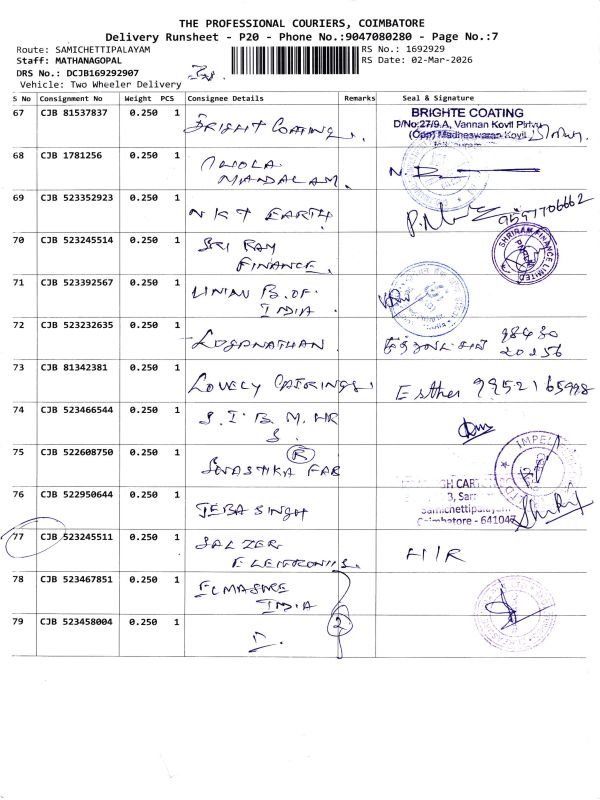 THE PROFESSIONAL COURIERS, COIMBATORE
Delivery Runsheet - P20 - Phone No.:9047080280 - Page No.:7
Route: SAMICHETTIPALAYAM
RS No.: 1692929
Staff: MATHANAGOPAL
RS Date: 02-Mar-2026
DRS No.: DCJB169292907
Vehicle: Two Wheeler Delivery
S No Consignment No Weight PCS Consignee Details Remarks Seal & Signature
67 CJB 81537837 0.250 1 BRIGHT COATING. BRIGHTE COATING
D/No:27/9.A, Vannan Kovil Pirivu
(Opp) Madheswaran Kovil
68 CJB 1781256 0.250 1
MANDALAM.
69 CJB 523352923 0.250 1 NKT EARTH 9597706662
70 CJB 523245514 0.250 1 SRI RAM
FINANCE. SHRIRAM FINANCE LIMITED
71 CJB 523392567 0.250 1 UNIAN B.OF
INDIA
72 CJB 523232635 0.250 1 LOGANATHAN 98430
20356
73 CJB 81342381 0.250 1 LOVELY CATERINGS Esther 9952165998
74 CJB 523466544 0.250 1 S.I.B.M.HR
S.
75 CJB 522608750 0.250 1 R
SWASTIKA FAB
76 CJB 522950644 0.250 1 JEBA SINGH
Samichettipalayam
Coimbatore - 641047
77 CJB 523245511 0.250 1 SALZER
ELEITRONIIS. HR
78 CJB 523467851 0.250 1
INDIA
79 CJB 523458004 0.250 1 2